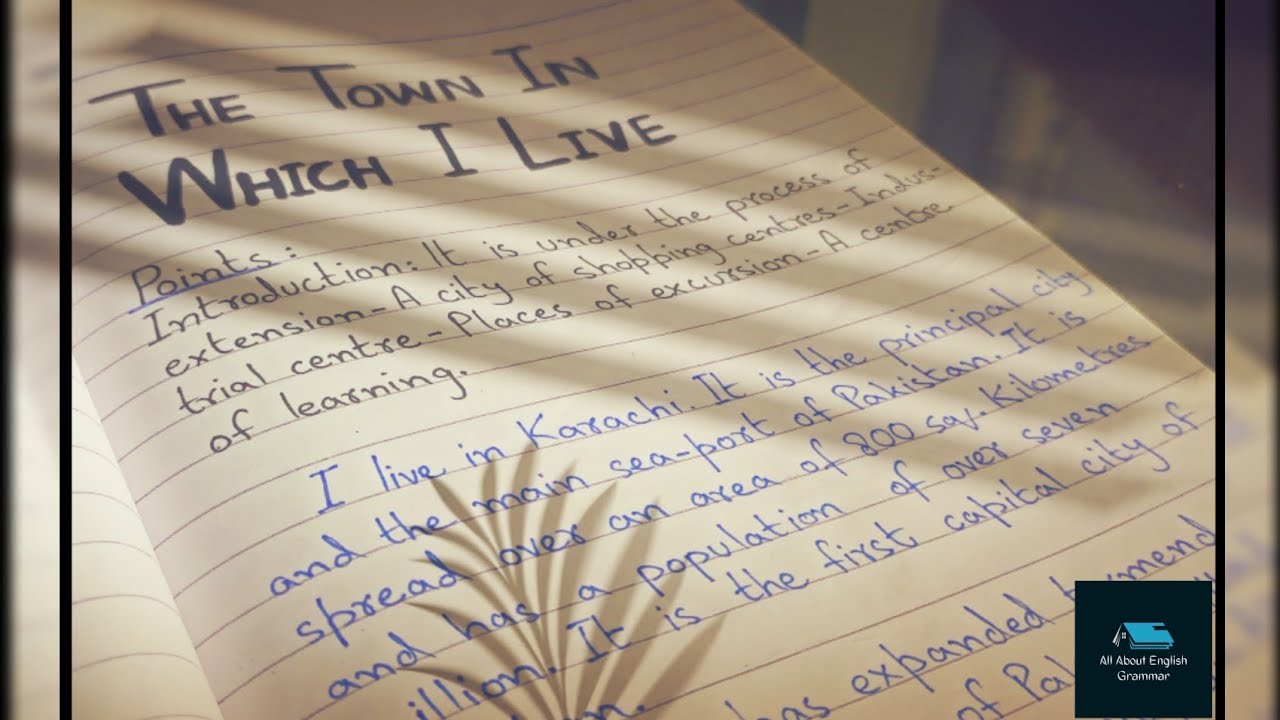 THE TOWN IN
WHICH I LIVE
Points:
Introduction: It is under the process of
extension-A city of shopping centres-Indus-
trial centre-Places of excursion-A centre
of learning.
I live in Karachi. It is the principal city
and the main sea-port of Pakistan. It is
spread over an area of 800 sq. Kilometres
and has a population of over seven
illion. It is the first capital city of
has expanded
of
All About English
Grammar